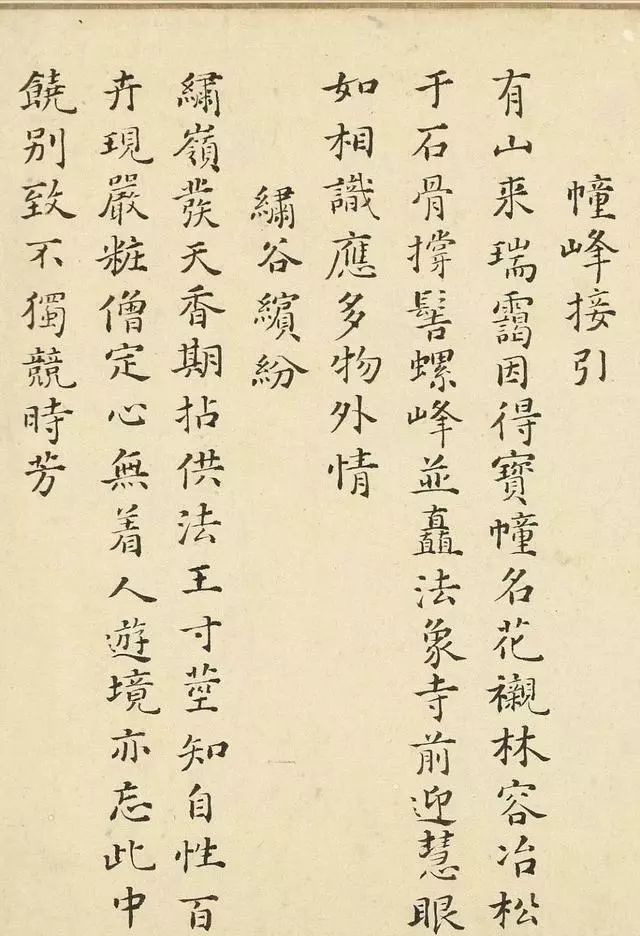 幢峰接引
有山来瑞靄因得寶幢名花襯林容冶松
于石骨撐髻螺峰並矗法象寺前迎慧眼
如相識應多物外情
繡谷繽紛
繡嶺發天香期拈供法王寸莖知自性百
卉現嚴粧僧定心無着人遊境亦忘此中
饒别致不獨競時芳